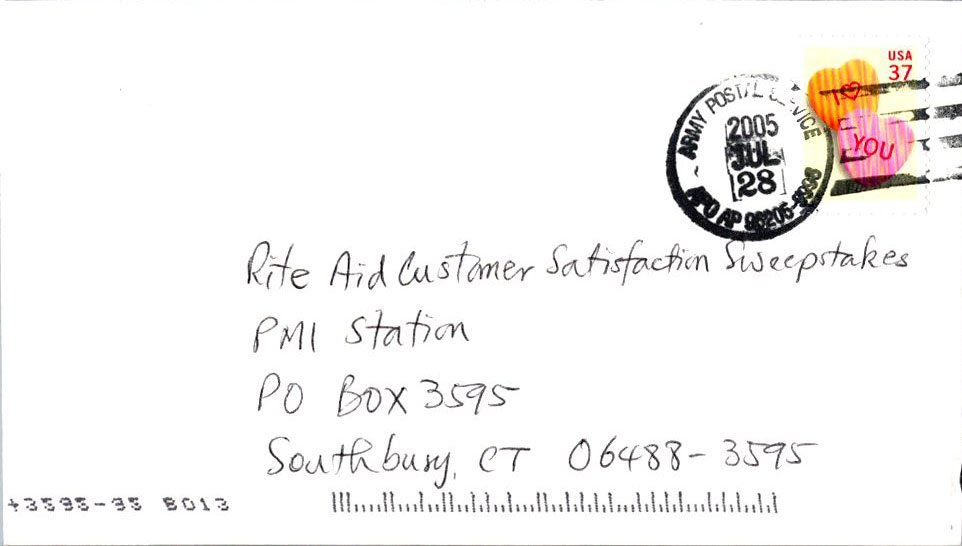 USA
37
I
YOU
ARMY POSTAL SERVICE
2005
JUL
28
APO AP 96205-9998
Rite Aid Customer Satisfaction Sweepstakes
PMI Station
PO BOX 3595
Southbury, CT 06488-3595
43595-95 B013